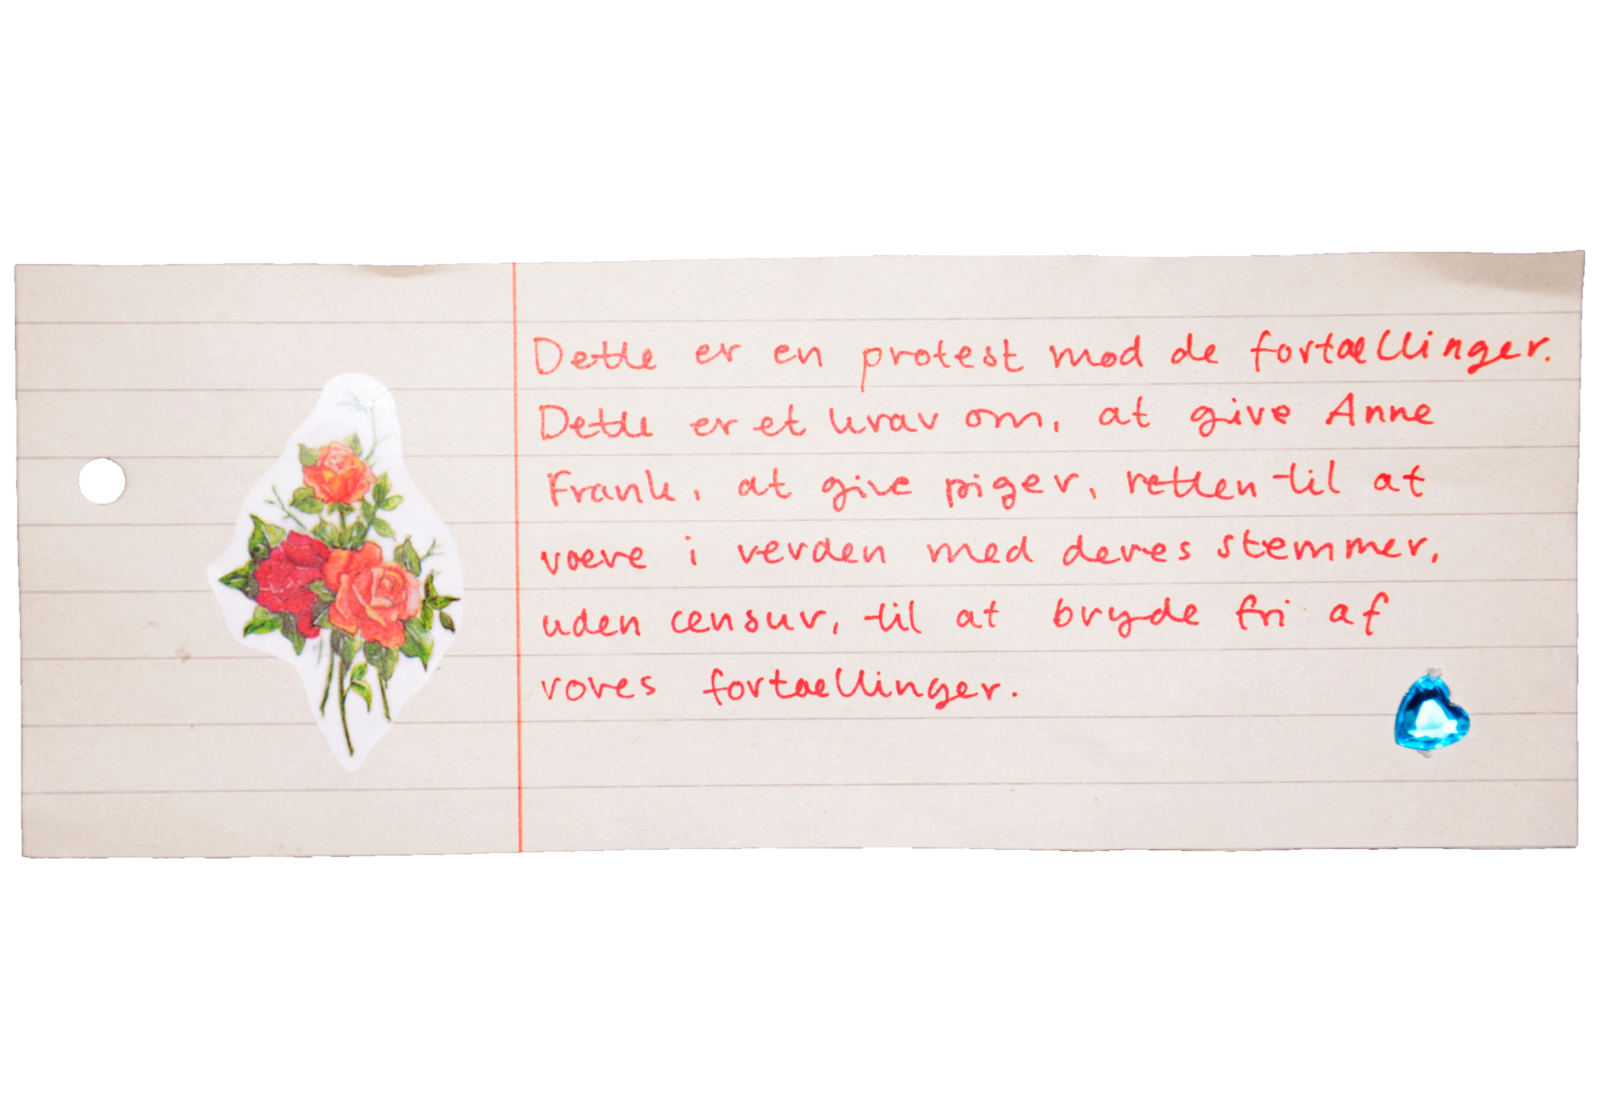 Dette er en protest mod de fortællinger.
Dette er et krav om, at give Anne
Frank, at give piger, retten til at
være i verden med deres stemmer,
uden censur, til at bryde fri af
vores fortællinger.